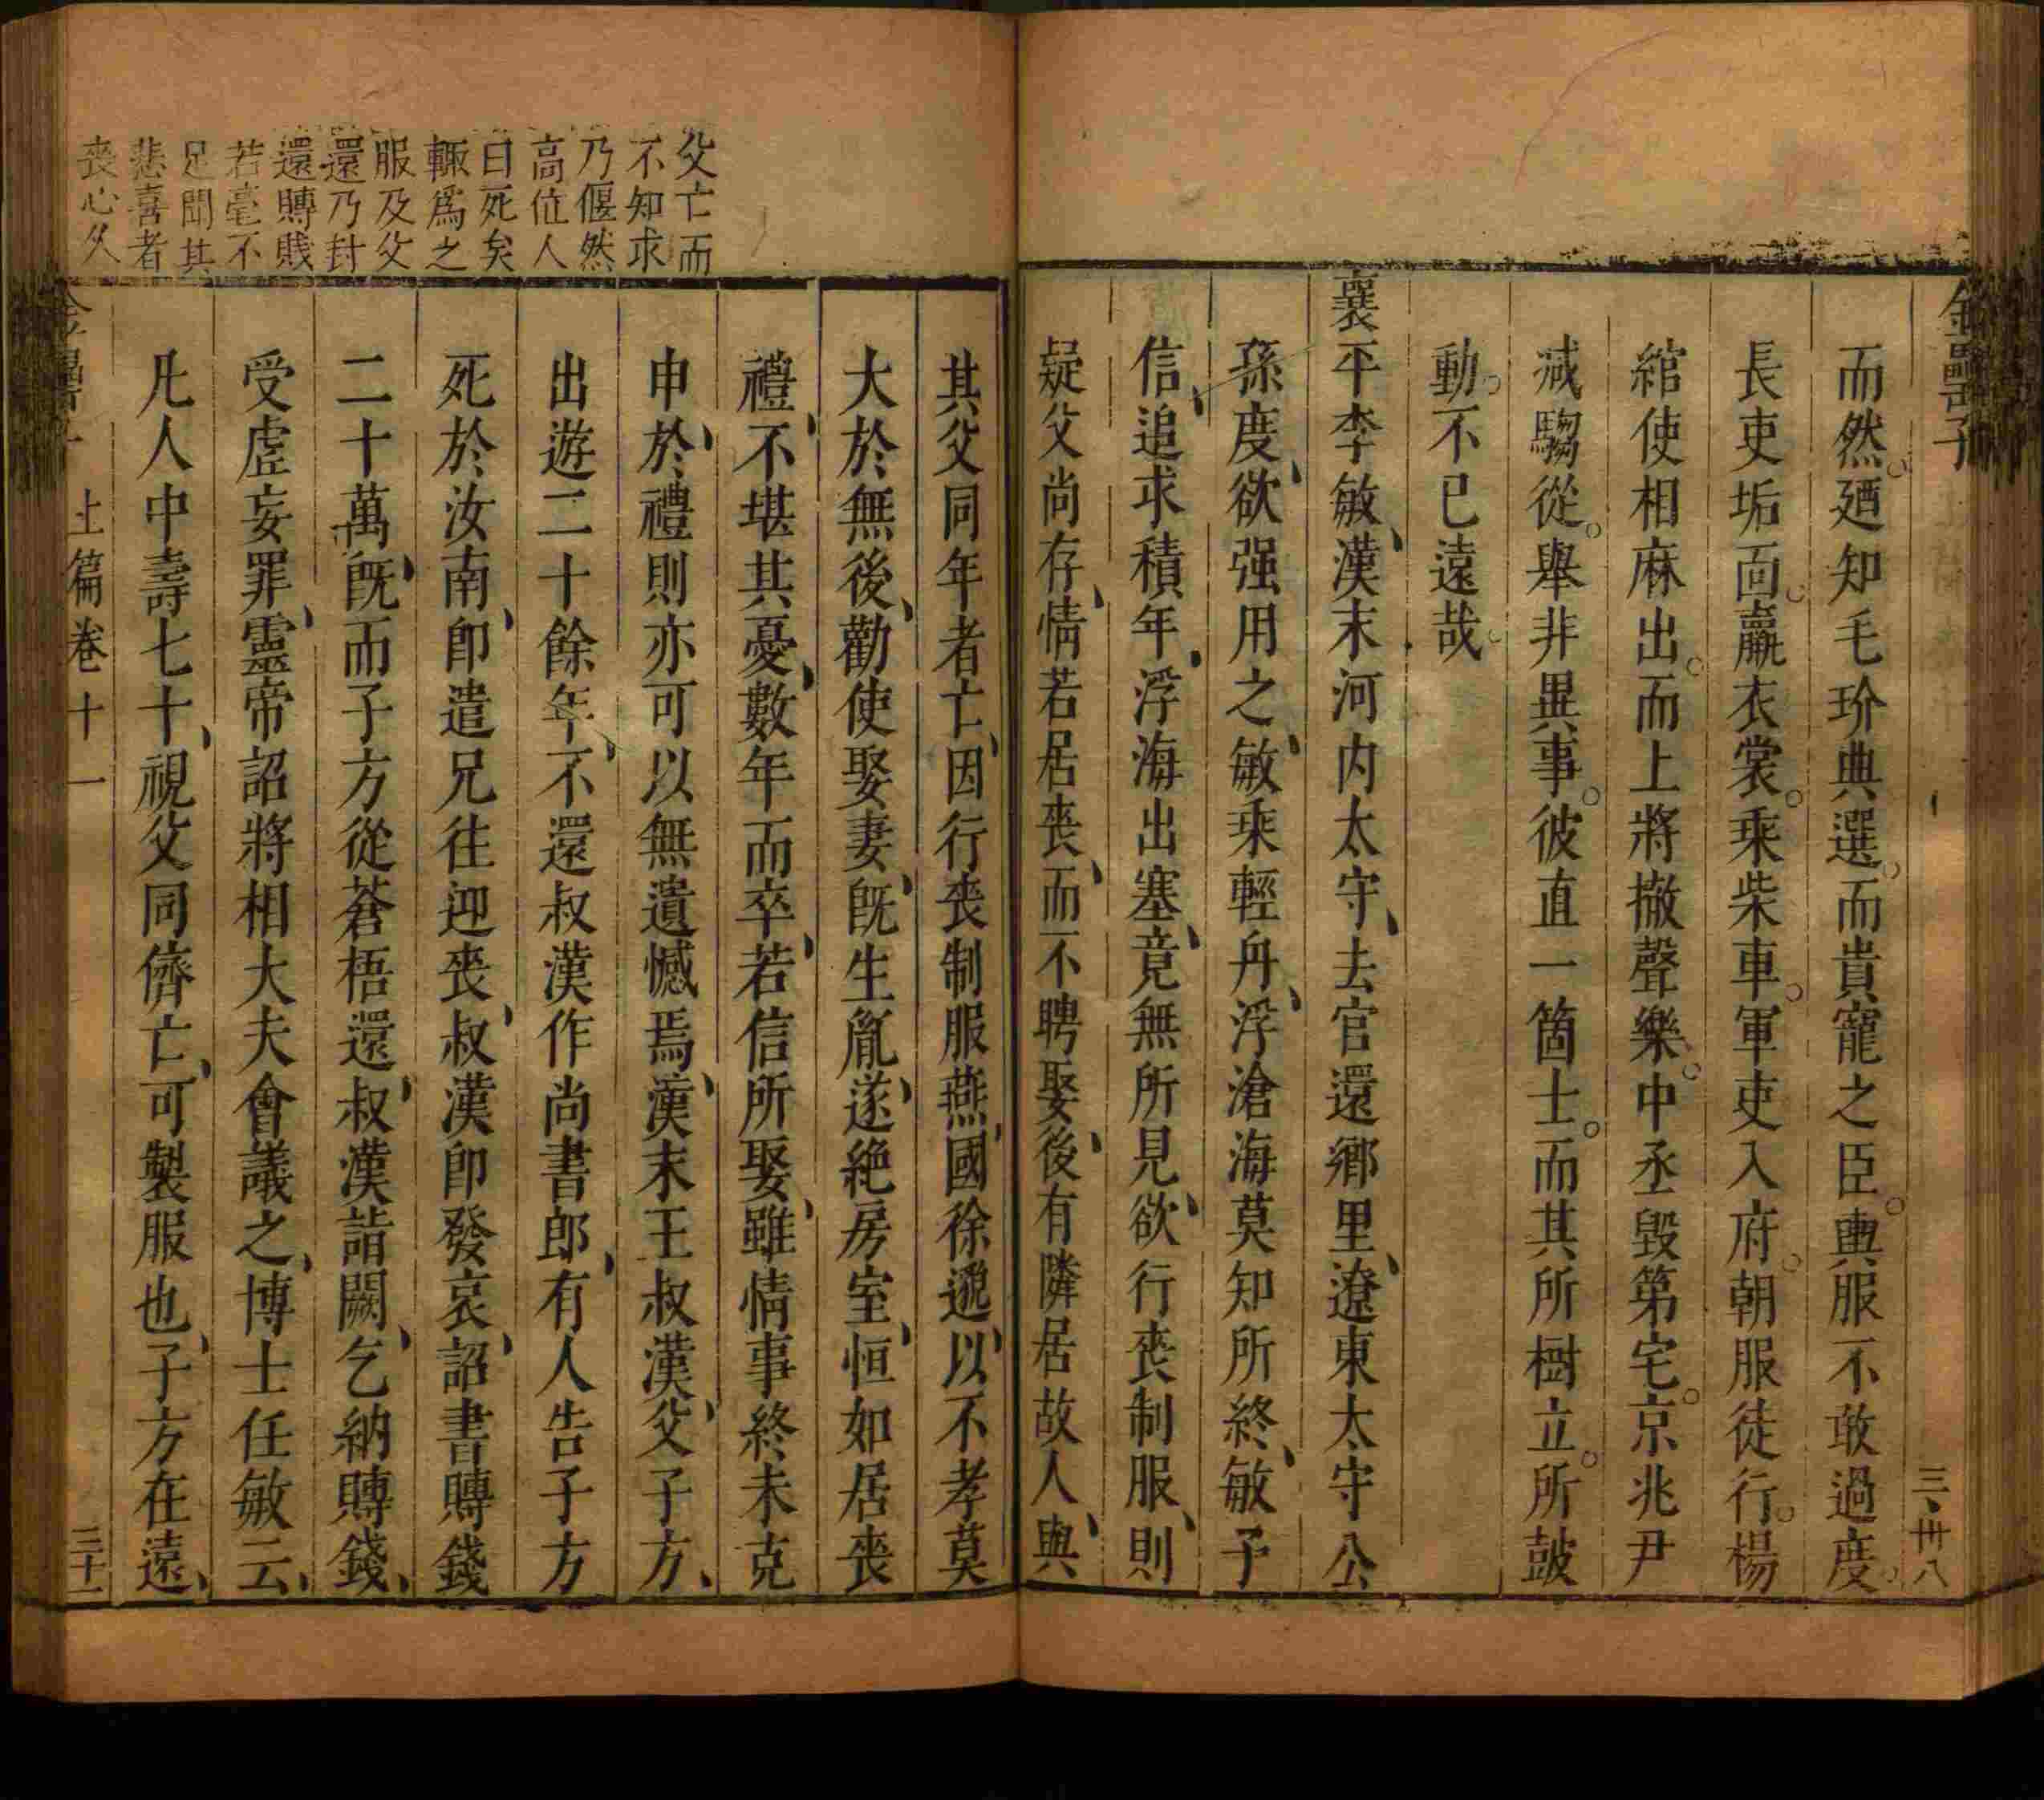 金罍子
三卅八
而然廼知毛玠典選而貴寵之臣輿服不敢過度
長吏垢面羸衣裳乘柴車軍吏入府朝服徒行楊
綰使相麻出而上將撤聲樂中丞毀第宅京兆尹
減騶從舉非異事彼直一箇士而其所樹立所鼓
動不已遠哉
襄平李敏漢末河內太守去官還鄉里遼東太守公
孫度欲强用之敏乘輕舟浮滄海莫知所終敏子
信追求積年浮海出塞竟無所見欲行喪制服則
疑父尚存情若居喪而不聘娶後有隣居故人與
其父同年者亡因行喪制服燕國徐邈以不孝莫
大於無後勸使娶妻旣生胤遂絕房室恒如居喪
禮不堪其憂數年而卒若信所娶雖情事終未克
申於禮則亦可以無遺憾焉漢末王叔漢父子方
出遊二十餘年不還叔漢作尚書郎有人告子方
死於汝南卽遣兄往迎喪叔漢卽發哀詔書賻錢
二十萬旣而子方從蒼梧還叔漢詣闕乞納賻錢
受虛妄罪靈帝詔將相大夫會議之博士任敏云
凡人中壽七十視父同儕亡可製服也子方在遠
父亡而
不知求
乃偃然
高位人
曰死矣
輒爲之
服及父
還乃封
還賻賎
若毫不
足聞其
悲喜者
喪心久
上篇卷十一
三十一